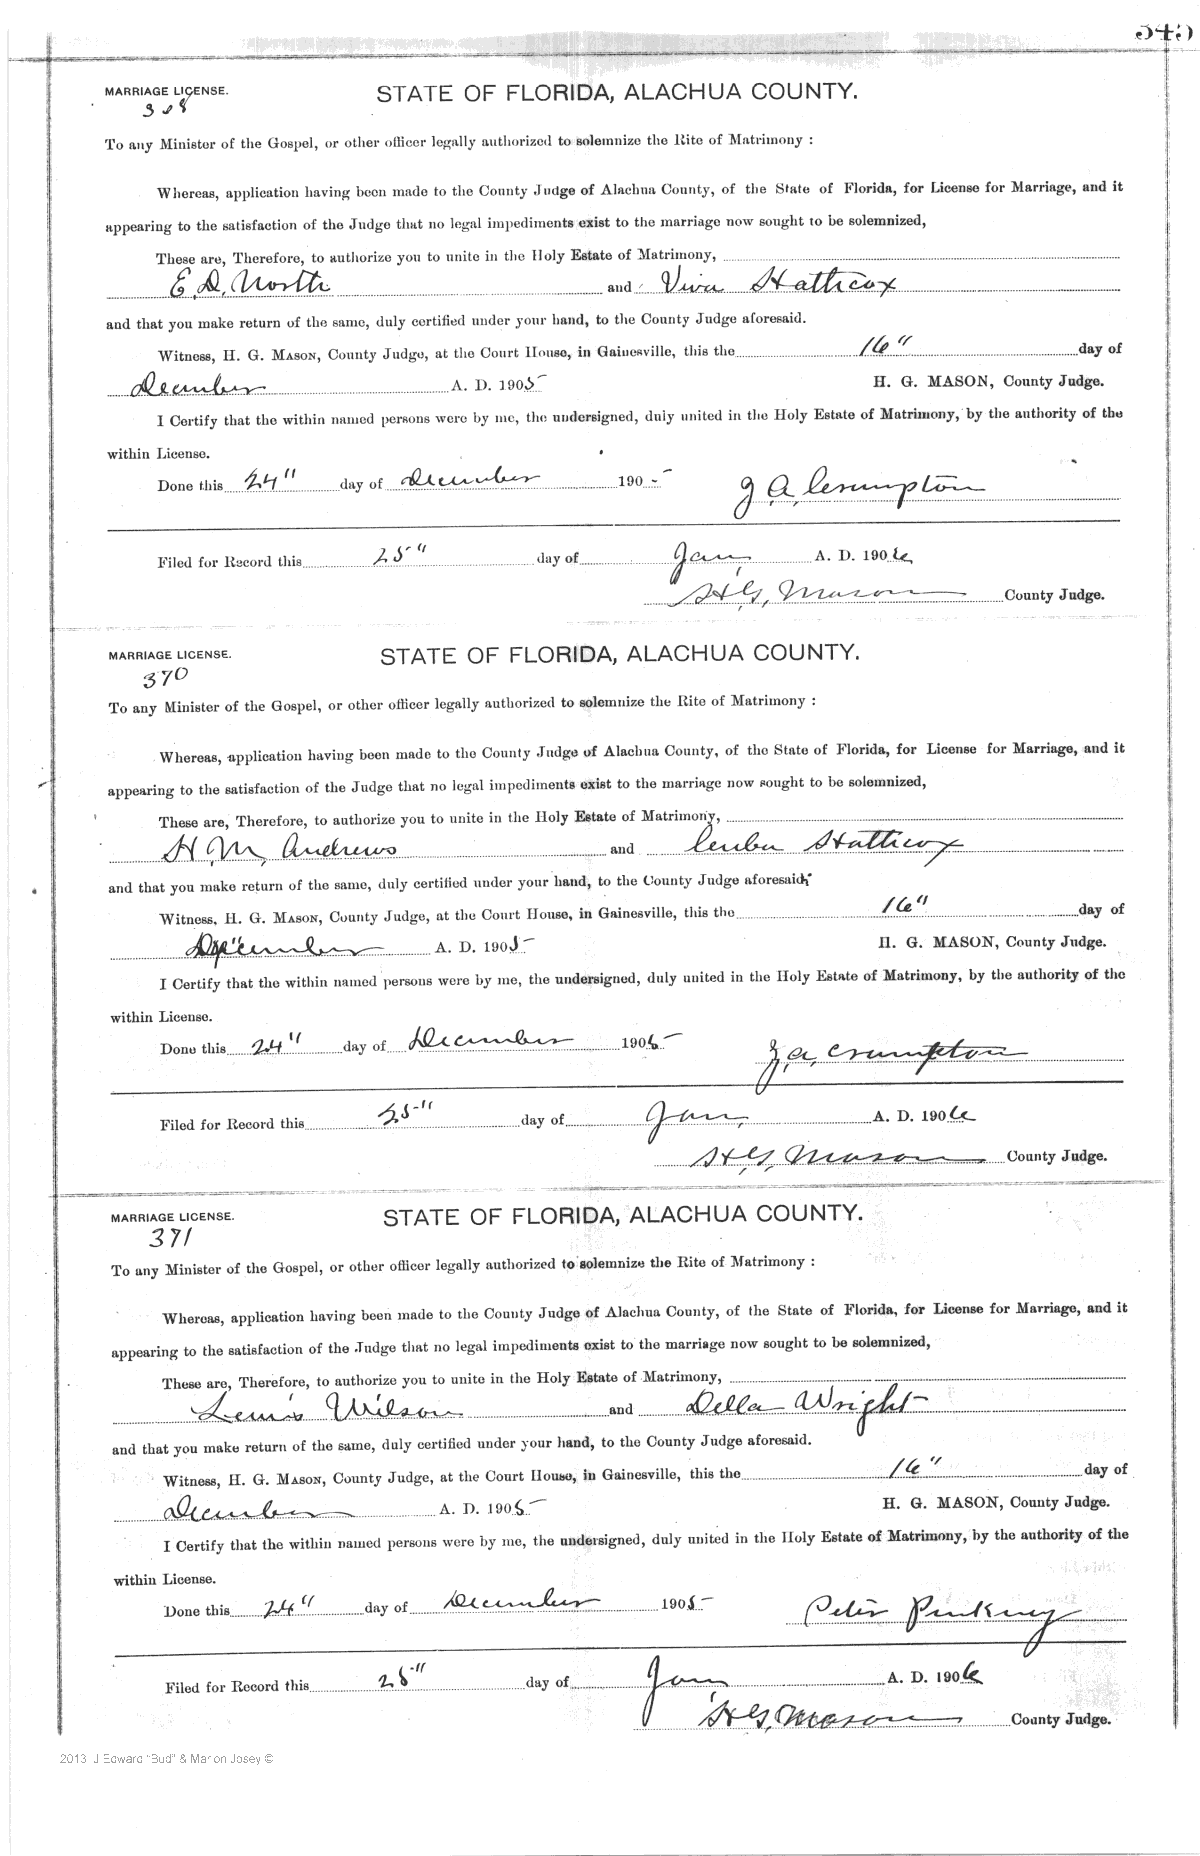 545
MARRIAGE LICENSE.
STATE OF FLORIDA, ALACHUA COUNTY.
308
To any Minister of the Gospel, or other officer legally authorized to solemnize the Rite of Matrimony :
Whereas, application having been made to the County Judge of Alachua County, of the State of Florida, for License for Marriage, and it
appearing to the satisfaction of the Judge that no legal impediments exist to the marriage now sought to be solemnized,
These are, Therefore, to authorize you to unite in the Holy Estate of Matrimony,
E. D. North and Viva Hatticox
and that you make return of the same, duly certified under your hand, to the County Judge aforesaid.
Witness, H. G. MASON, County Judge, at the Court House, in Gainesville, this the 16" day of
December A. D. 1905 H. G. MASON, County Judge.
I Certify that the within named persons were by me, the undersigned, duly united in the Holy Estate of Matrimony, by the authority of the
within License.
Done this 24" day of December 190 5 J. A. Crumpton
Filed for Record this 25" day of Jan, A. D. 1906
H. G. Mason County Judge.
MARRIAGE LICENSE.
STATE OF FLORIDA, ALACHUA COUNTY.
370
To any Minister of the Gospel, or other officer legally authorized to solemnize the Rite of Matrimony :
Whereas, application having been made to the County Judge of Alachua County, of the State of Florida, for License for Marriage, and it
appearing to the satisfaction of the Judge that no legal impediments exist to the marriage now sought to be solemnized,
These are, Therefore, to authorize you to unite in the Holy Estate of Matrimony,
H. M. Andrews and Cuba Hatticox
and that you make return of the same, duly certified under your hand, to the County Judge aforesaid.
Witness, H. G. MASON, County Judge, at the Court House, in Gainesville, this the 16" day of
December A. D. 1905 H. G. MASON, County Judge.
I Certify that the within named persons were by me, the undersigned, duly united in the Holy Estate of Matrimony, by the authority of the
within License.
Done this 24" day of December 1905 J. A. Crumpton
Filed for Record this 25" day of Jan, A. D. 1906
H. G. Mason County Judge.
MARRIAGE LICENSE.
STATE OF FLORIDA, ALACHUA COUNTY.
371
To any Minister of the Gospel, or other officer legally authorized to solemnize the Rite of Matrimony :
Whereas, application having been made to the County Judge of Alachua County, of the State of Florida, for License for Marriage, and it
appearing to the satisfaction of the Judge that no legal impediments exist to the marriage now sought to be solemnized,
These are, Therefore, to authorize you to unite in the Holy Estate of Matrimony,
Lewis Wilson and Della Wright
and that you make return of the same, duly certified under your hand, to the County Judge aforesaid.
Witness, H. G. MASON, County Judge, at the Court House, in Gainesville, this the 16" day of
December A. D. 1905 H. G. MASON, County Judge.
I Certify that the within named persons were by me, the undersigned, duly united in the Holy Estate of Matrimony, by the authority of the
within License.
Done this 24" day of December 1905 Peter Pinkney
Filed for Record this 25" day of Jan A. D. 1906
H. G. Mason County Judge.
2013 J Edward "Bud" & Marion Josey ©